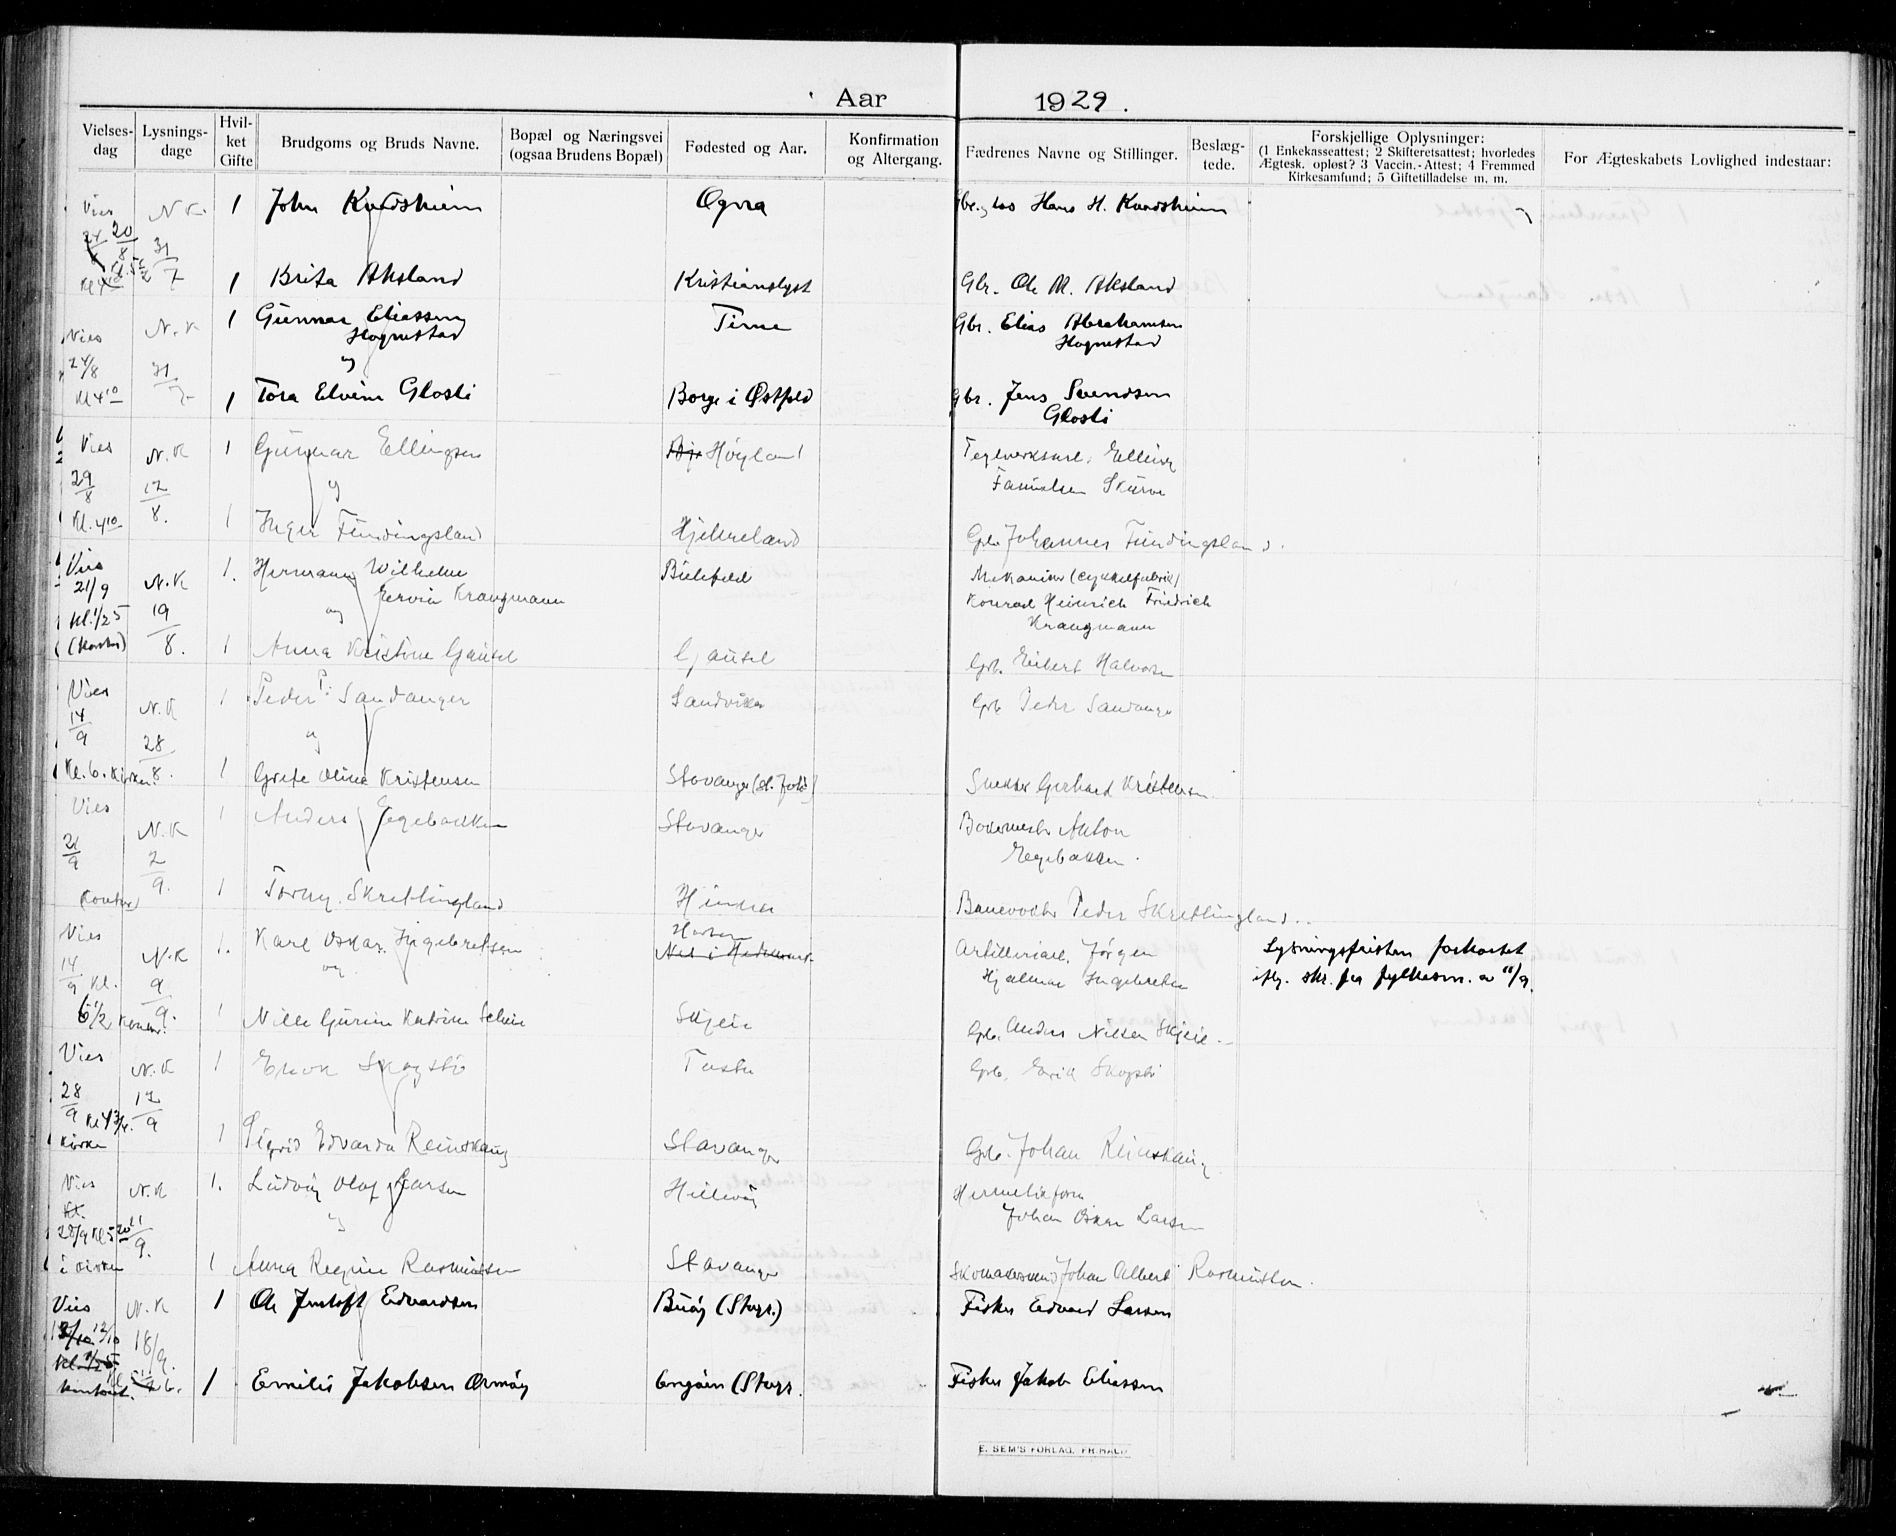 Aar 1929.
Vielses-dag
Lysnings-dage
Hvil-ket Gifte
Brudgoms og Bruds Navne.
Bopæl og Næringsvei (ogsaa Brudens Bopæl)
Fødested og Aar.
Konfirmation og Altergang.
Fædrenes Navne og Stillinger.
Beslæg-tede.
Forskjellige Oplysninger:
(1 Enkekasseattest; 2 Skifteretsattest; hvorledes
Ægtesk. opløst? 3 Vaccin.-Attest; 4 Fremmed
Kirkesamfund; 5 Giftetilladelse m. m.
For Ægteskabets Lovlighed indestaar:
Vies N.K. 1 John Kvadsheim Ogna Hans H. Kvadsheim
20/8 31/7
1 Brita Aksland Kristianslyst Gbr. Ole M. Aksland
Vies N.K 1 Gunnar Eliassen Time Gbr. Elias Abrahamsen
Hognestad Hognestad
24/8 31/7 og
Kl 4 10 1 Tora Elvine Glosli Borge i Østfold Gbr. Jens Svendsen
Glosli
Vies N.K 1 Gunnar Ellingsen Høyland Teglverksarb. Elling
29/8 17/8. og Skurve
Kl. 4 10 1 Inger Fundingsland Hjelmeland Gbr. Johannes Fundingsland.
Vies N.K 1. Hermann Wilhelm Bielefeld Mekaniker (cykkelfabrik)
21/9 Ervin Krangmann Konrad Heinrich Friedrich
Kl. 1/2 5 19/8. og Krangmann
1 Anna Kristine Gausel Gausel Gbr. Eilert Halvorsen
Vies N.K 1 Peder P. Sandanger Sandviken Gbr. Peder Sandanger
14/9 28/8. og
Kl. 6. Kirken 1 Grete Oline Kristensen Stavanger (St. Joh) Snekker Gerhard Kristensen
Vies N.K 1 Anders Egebakken Stavanger Anton
21/9 2/9. Egebakken.
Kontor 1 Torny Skretlingland Hinna Banevokter Peder Skretlingland.
Vies N.K 1. Karl Oskar Ingebretsen Horten Artilleriarb. Jørgen Lysningsfristen forkortet
14/9 Kl. 9/9. og Hjalmar Ingebretsen iflg. skr. fra fylkesm. av 11/9.
6 1/2 Kontor. 1 Nille Gurine Katrine Skjeie Gbr. Anders Nilsen Skjeie.
Vies N.K 1 Skogstø Tasta Gbr. Erik Skogstø
28/9 Kl 4 3/4. 12/9
Kirke 1 Sigrid Edvarda Reinskaug Stavanger Gbr. Johan Reinskaug
Vies N.K 1. Ludvig Olaf Larsen Hillevåg Hermetikform
Johan Oskar Larsen
28/9 Kl 5 20 11/9. og
i kirken 1 Anna Regine Rasmussen Stavanger Skomakersvend Johan Albert Rasmussen.
Vies N.K 1 Ole Jentoft Edvardsen Buøy (Stvgr.) Fisker Edvard Larsen
12/10 18/9.
kontoret. 1 Emilie Jakobsen Ormøy Engøen (Stvgr. Fisker Jakob Eliassen
E. SEM'S FORLAG, FR.HALD